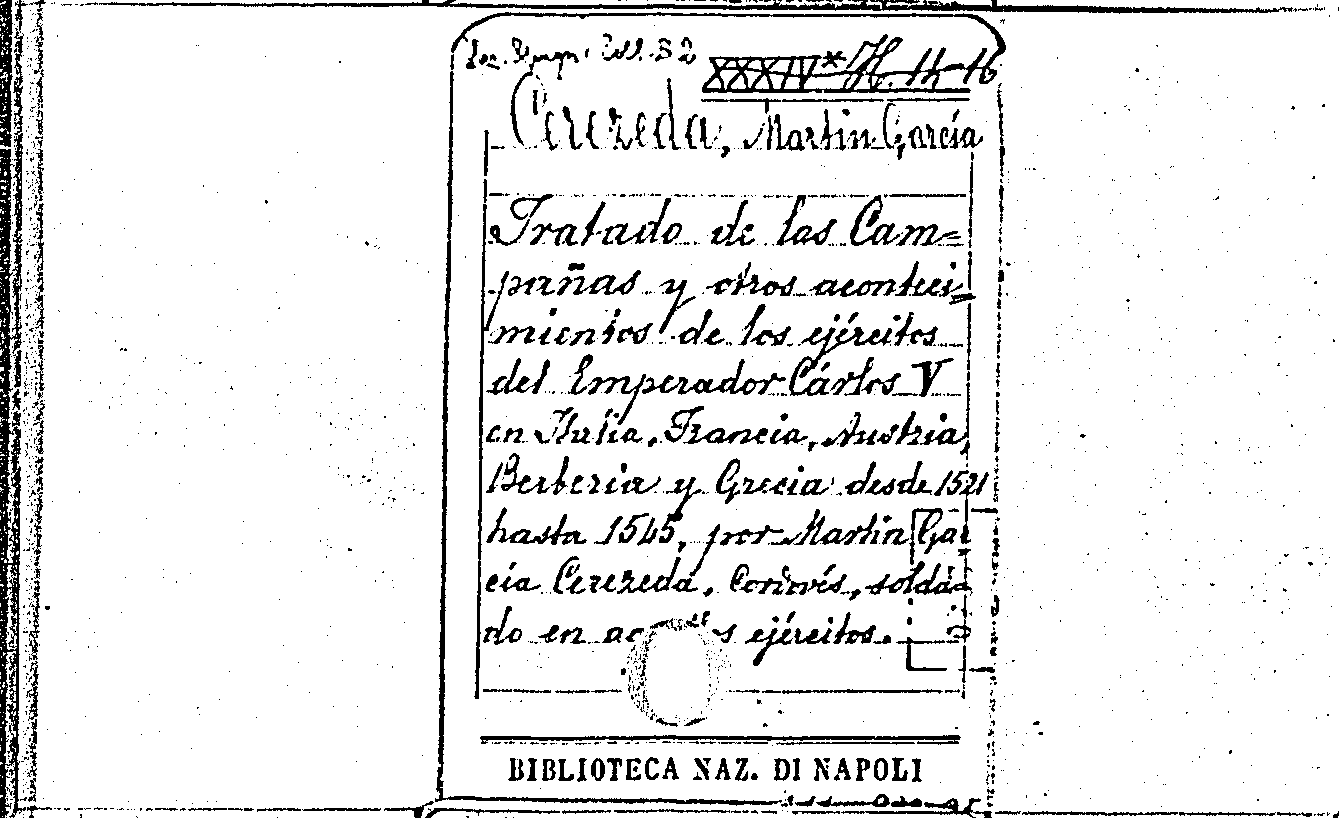 Coll. S 2
XXXIV* H. 14-16
Cerezeda, Martin García
Tratado de las Cam=
pañas y otros aconteci=
mientos de los ejércitos
del Emperador Cárlos V
en Italia, Francia, Austria,
Berberia y Grecia desde 1521
hasta 1545, por Martin Gar
cía Cerezeda, Cordovés, solda=
do en ejércitos.
BIBLIOTECA NAZ. DI NAPOLI